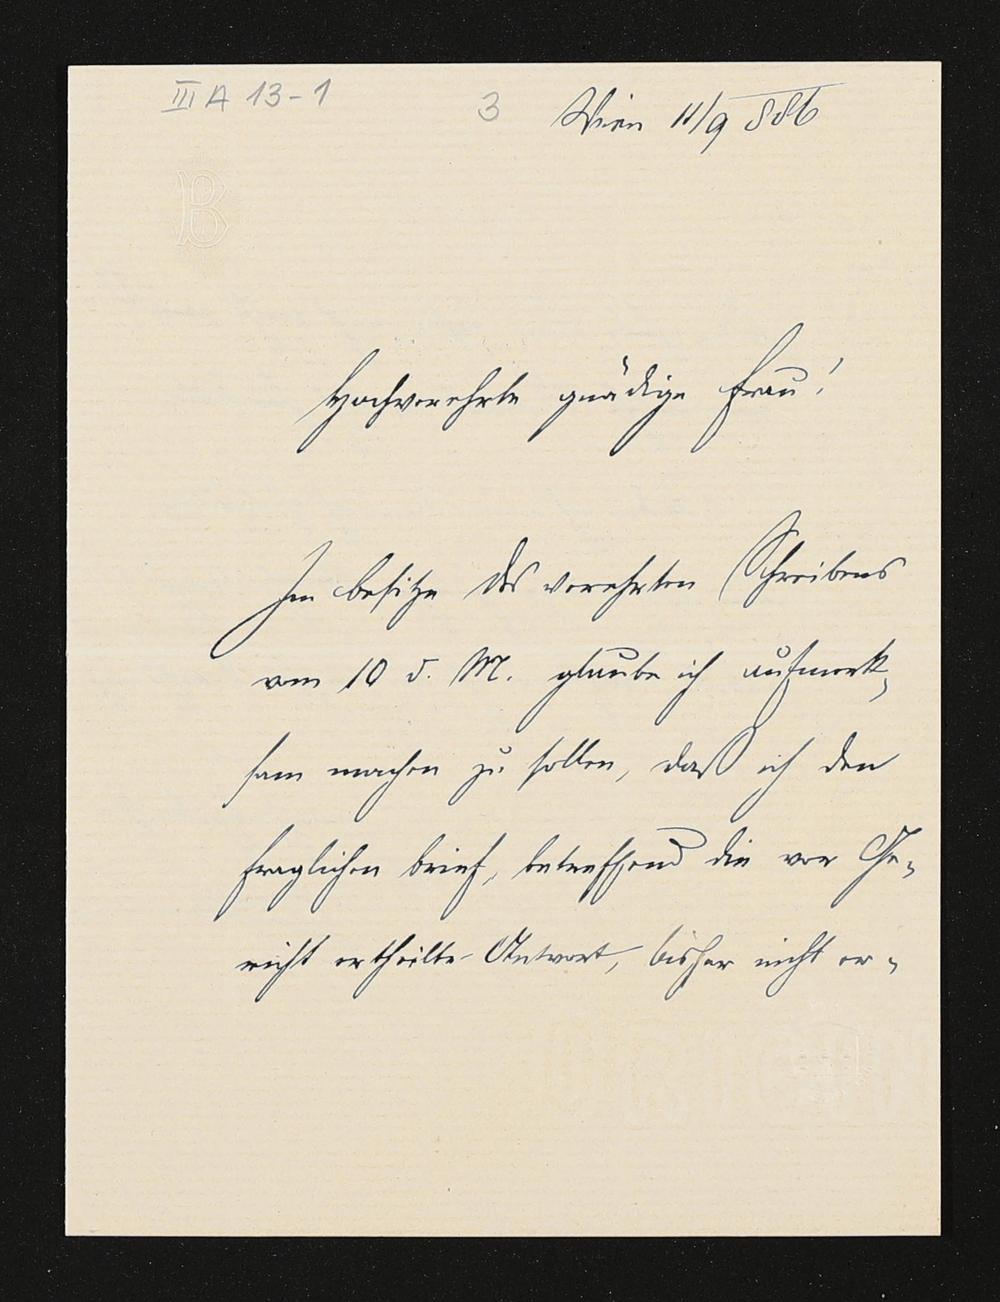 III A 13-1
3
Wien 11/9 886
B
Hochverehrte gnädige Frau!
Im Besitze des verehrten Schreibens
vom 10 d. M. glaube ich aufmerk-
sam machen zu sollen, daß ich den
fraglichen Brief, betreffend die vor Ge-
richt ertheilte Antwort, bisher nicht er-